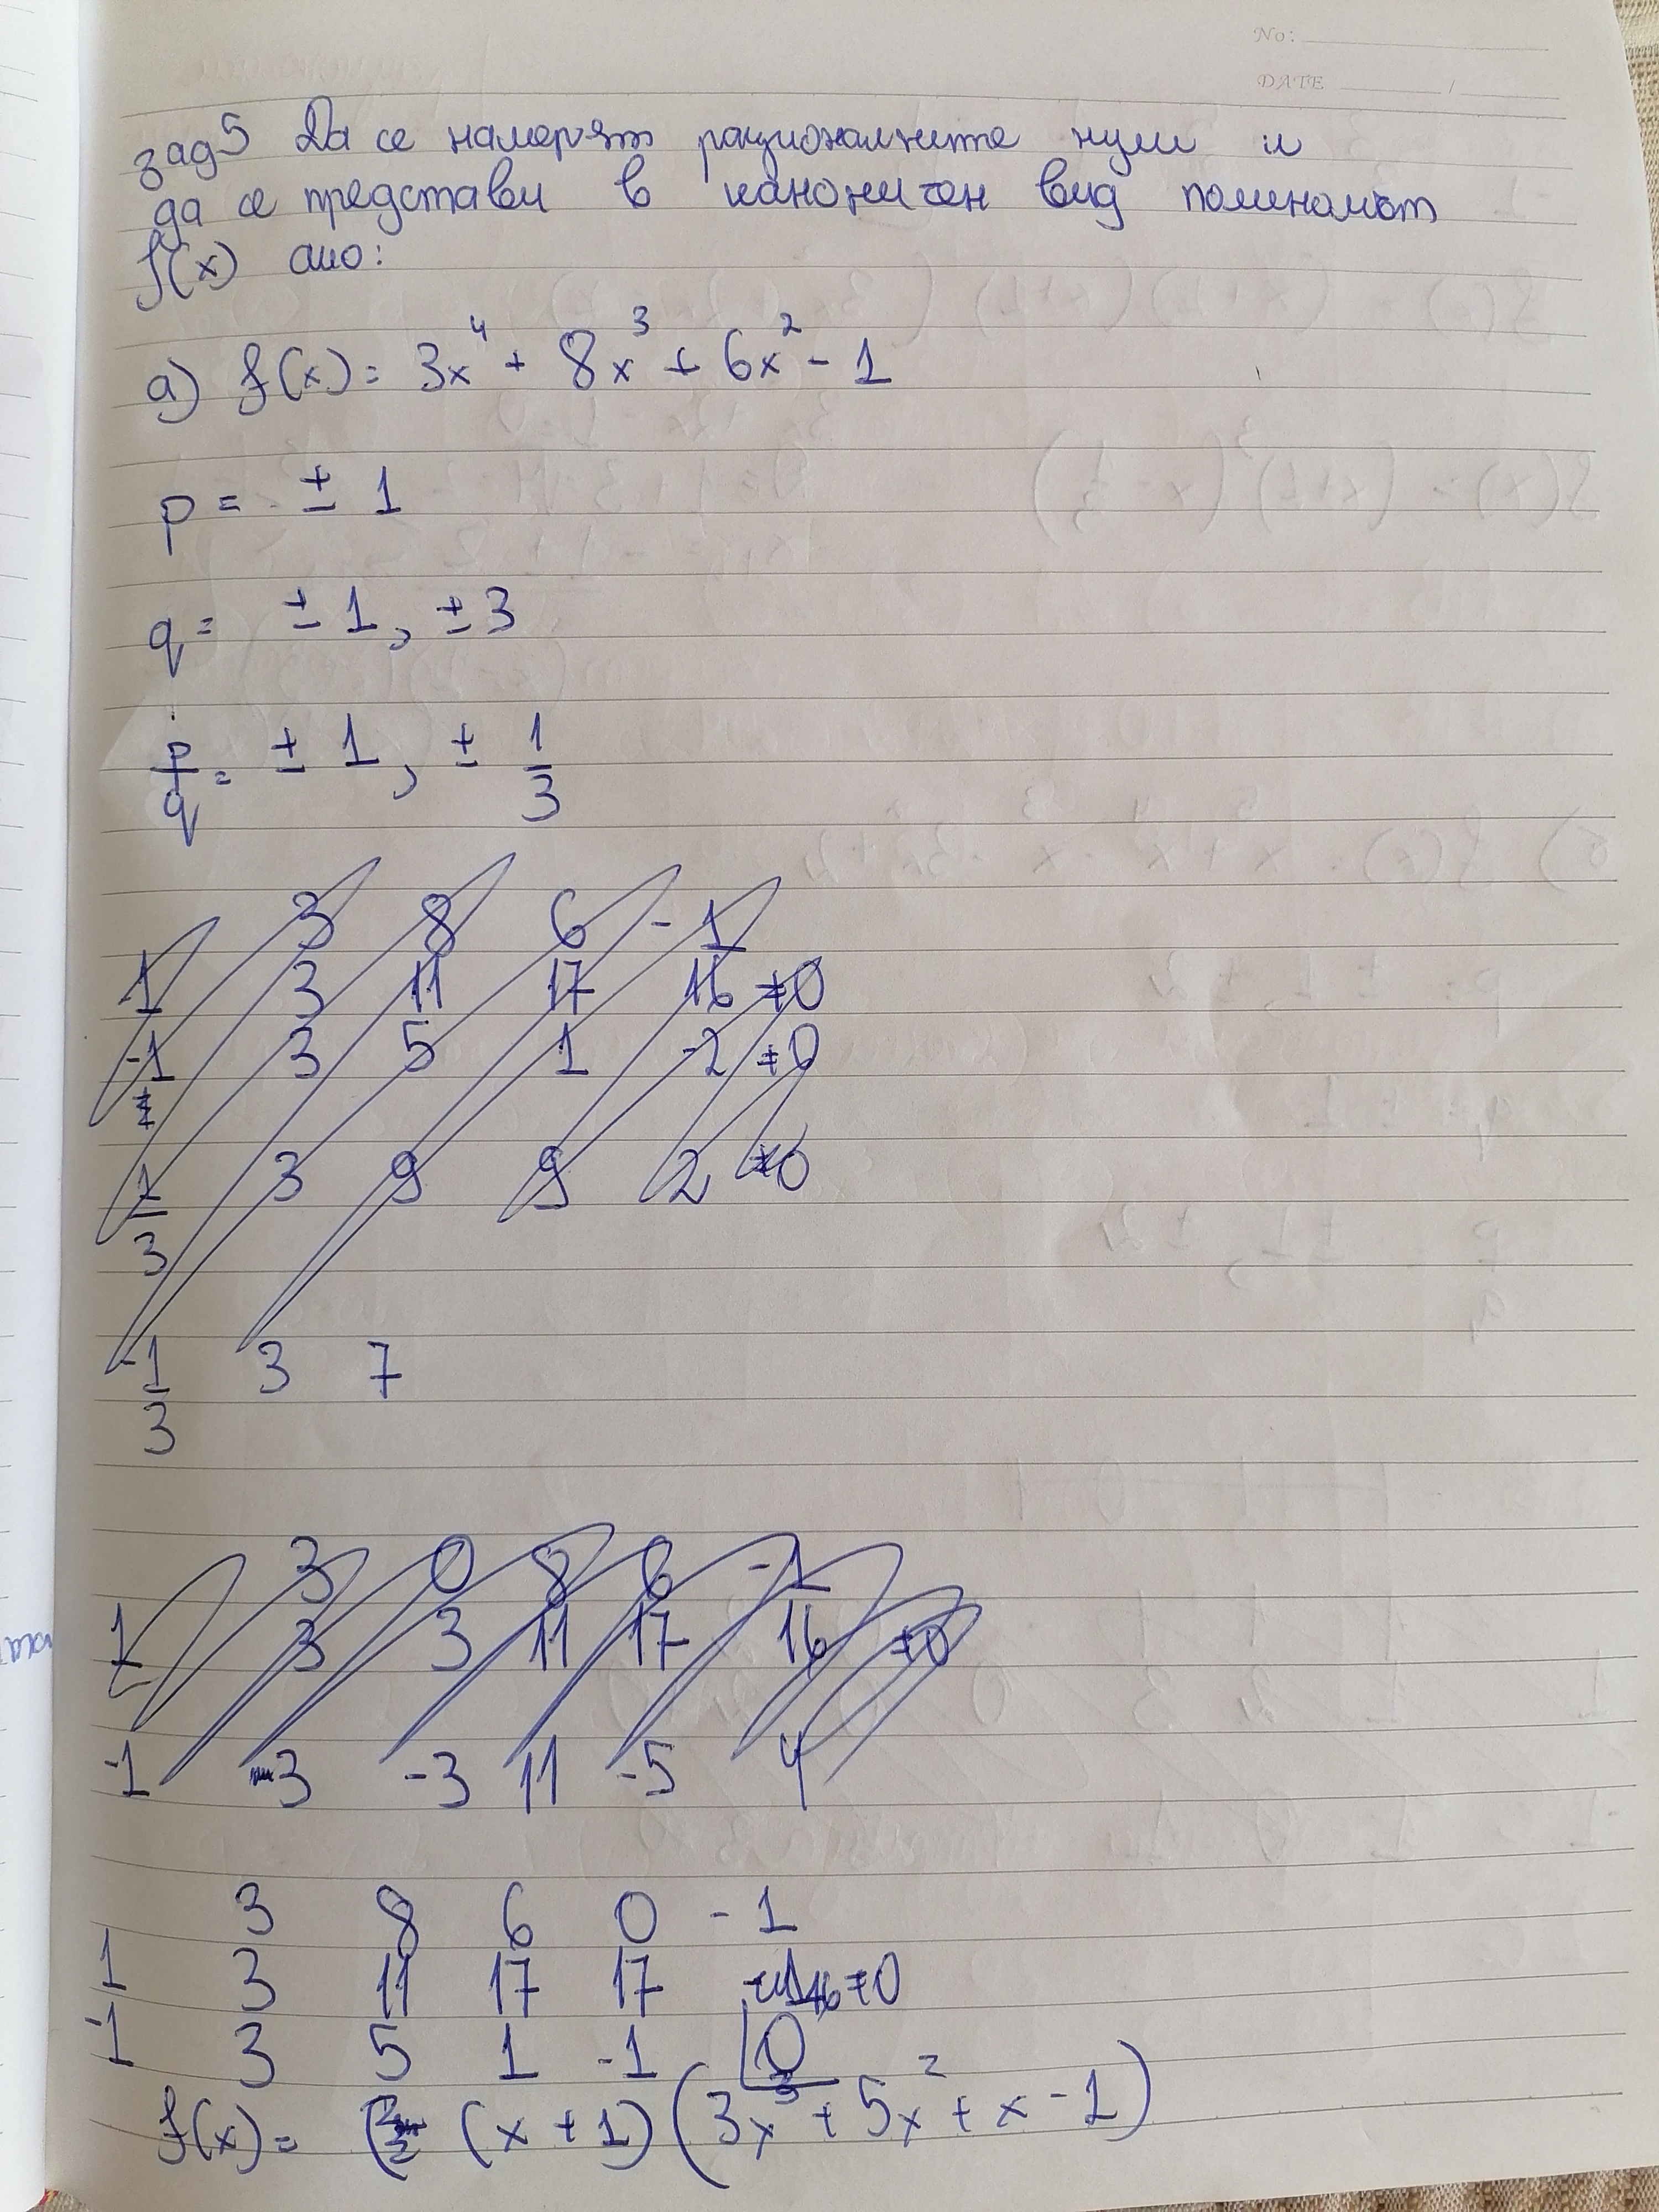 No:
DATE /
зад5 Да се намерят рационалните нули и
да се представи в каноничен вид полиномът
f(x) ако:
a) f(x) = 3x⁴ + 8x³ + 6x² - 1
p = ± 1
q = ± 1, ± 3
p/q = ± 1, ± 1/3
3 8 6 -1
1 3 11 17 16 ≠0
-1 3 5 1 -2 ≠0
1/3 3 9 9 2 ≠0
-1/3 3 7
3 0 8 6 -1
1 3 3 11 17 16 ≠0
-1 3 -3 11 -5 4
3 8 6 0 -1
1 3 11 17 17 16 ≠0
-1 3 5 1 -1 0
f(x) = (x + 1)(3x³ + 5x² + x - 1)